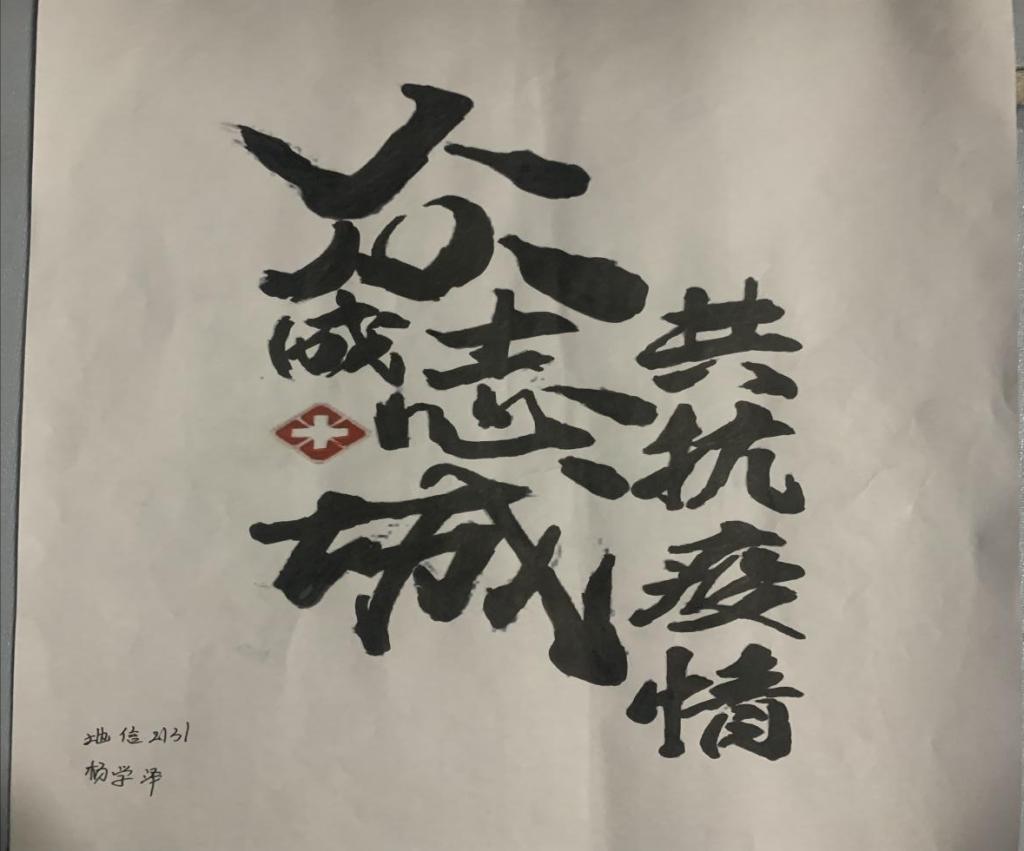 众志成城
共抗疫情
地信2131
杨学泽